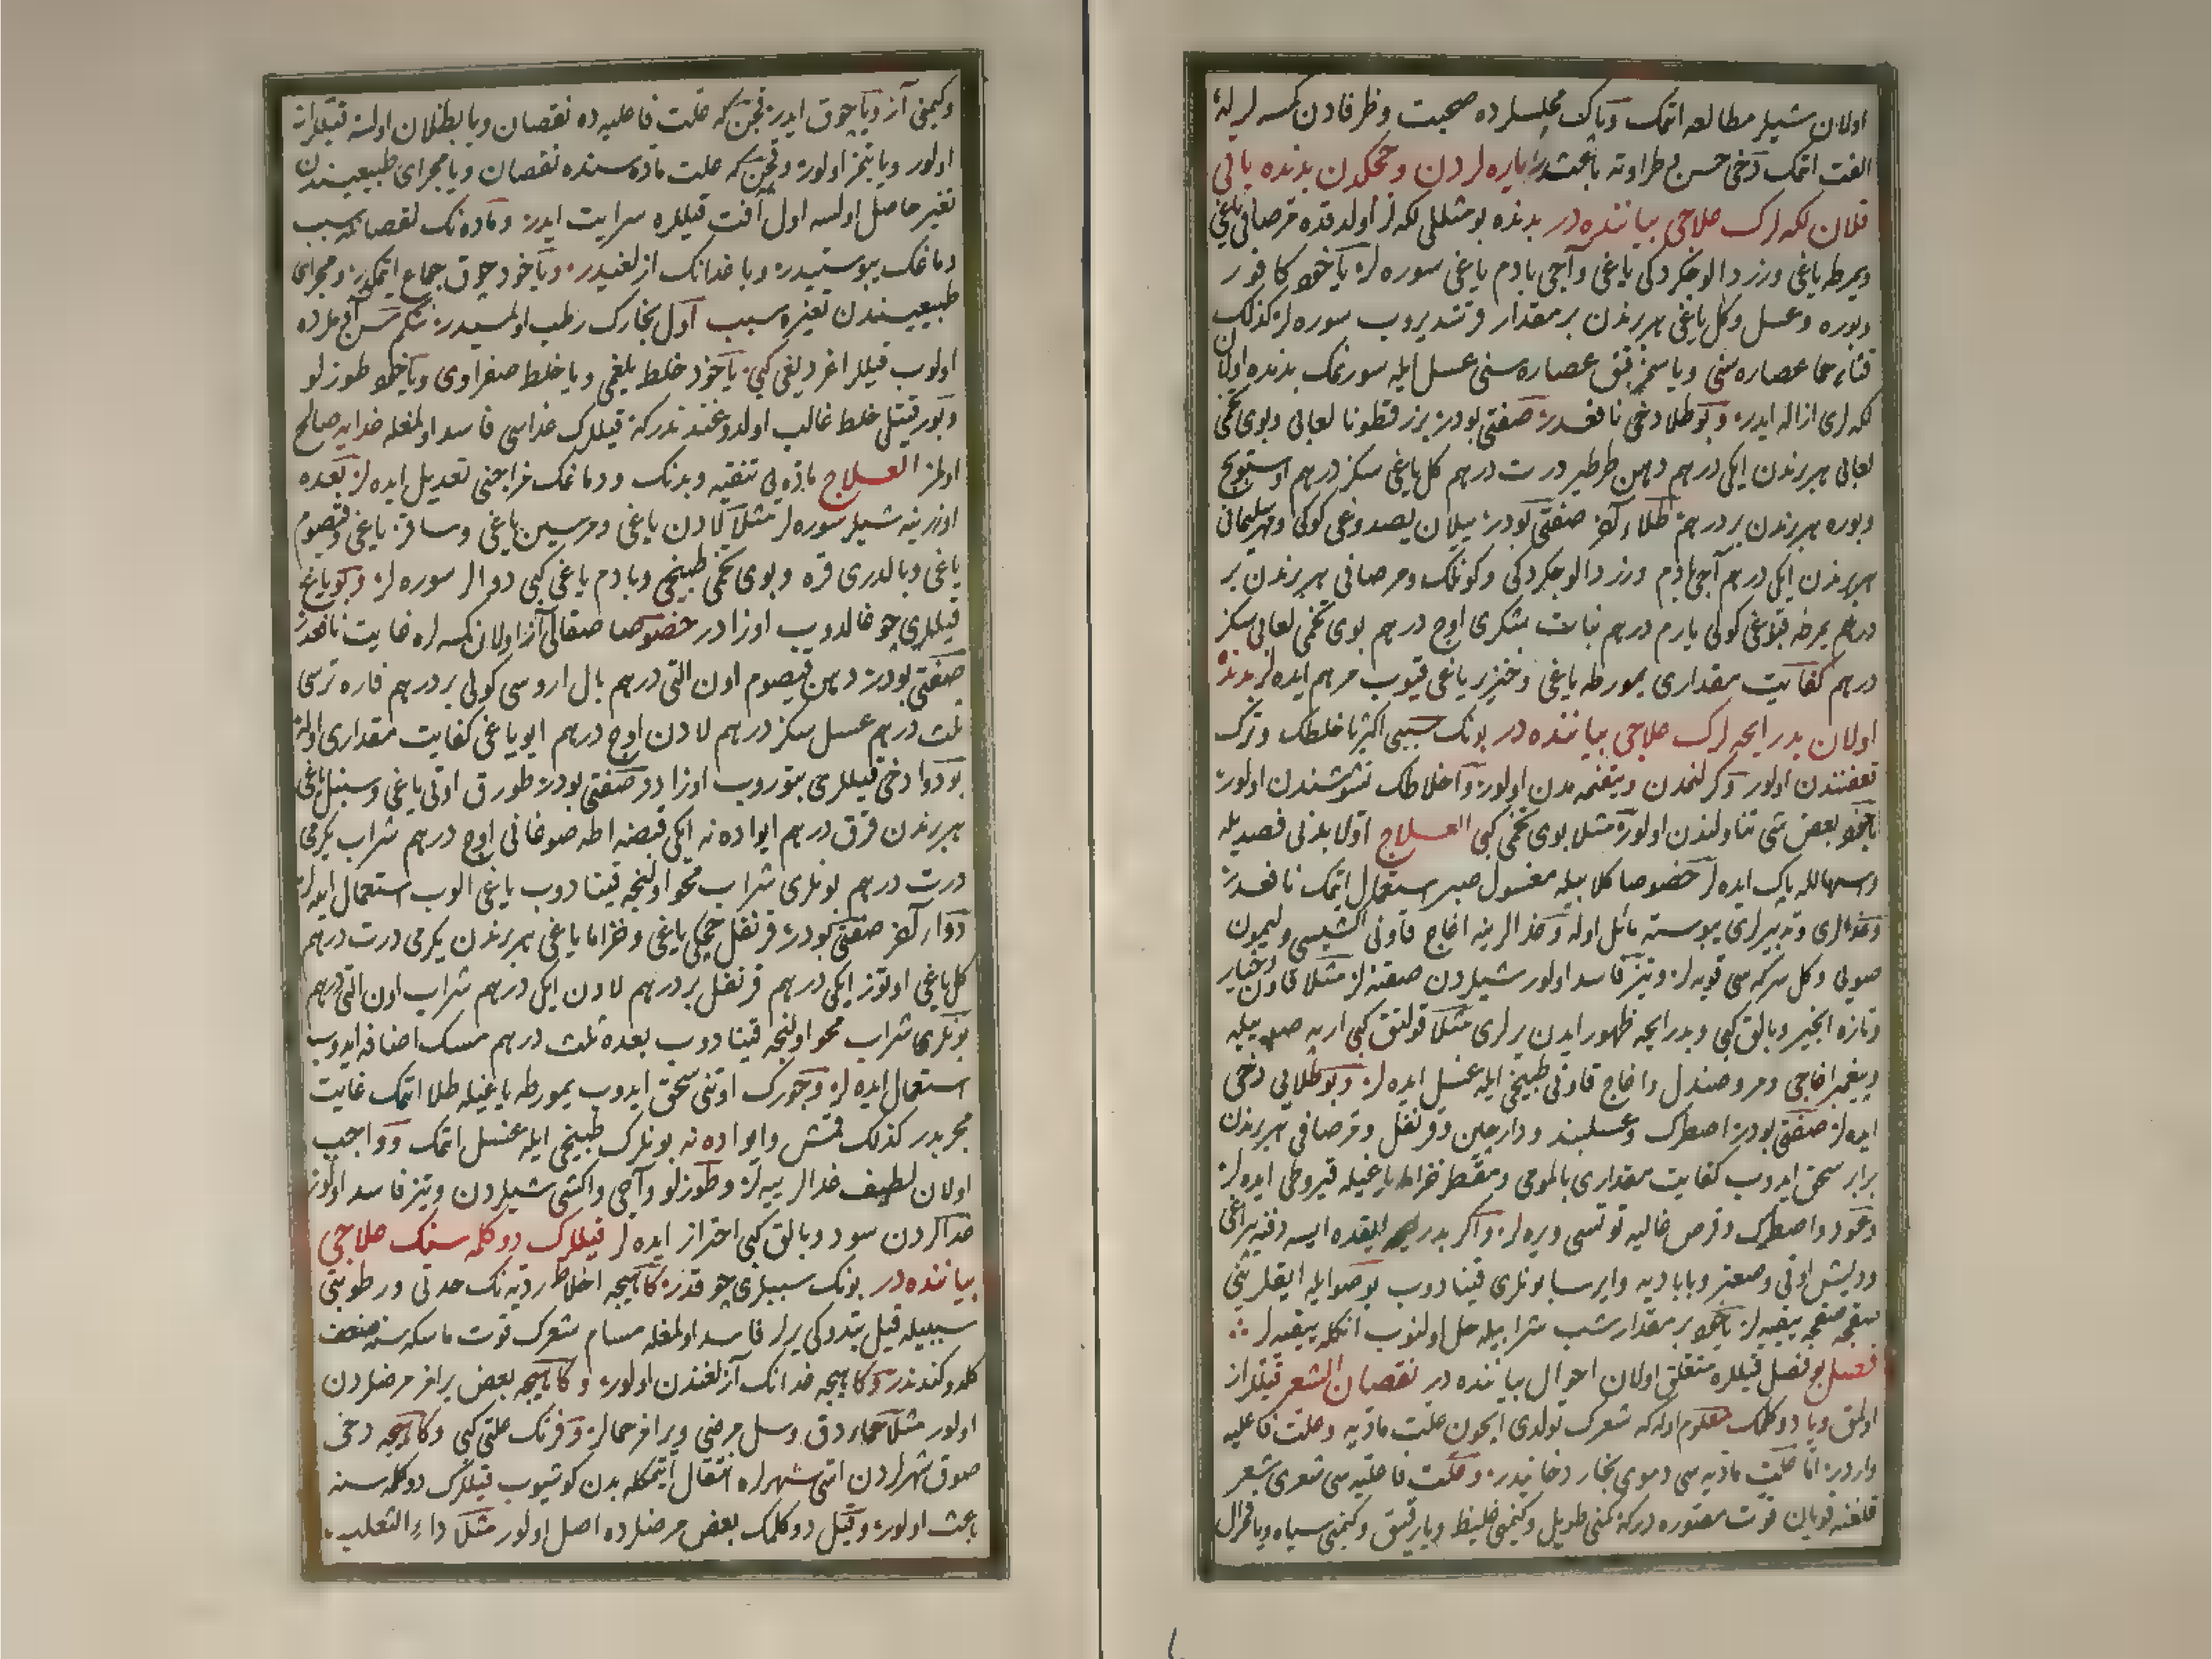 اولان شیلر مطالعه اتمک و پاک مجلسلرده صحبت و ظرفادن کمسه لر له
الفت اتمک دخی حسن طراوته باعثدر یاره لردن و چچکدن بدنده باقی
قلان لکه لرک علاجی بیاننده در بدنده بو مثللی لکه لر اولدقده مرصافی یاغی
ویمرطه یاغی وزردالو چکردکی یاغی و آجی بادم یاغی سوره لر یاخود کافور
وبوره وعسل وکل یاغی هر برندن بر مقدار قرشدیروب سوره لر کذلک
قثاء حما عصاره سنی ویا عصاره سنی عسل ایله سورنمک بدنده اولان
لکه لری ازاله ایدر وبو طلا دخی نافعدر صفتی بودر بزر قطونا لعابی وبوی تخمی
لعابی هر برندن ایکی درهم دهن طرطیر درت درهم کل یاغی سکز درهم اوستوبج
وبوره هر برندن بر درهم طلاء آخر صفتی بودر ییلان یصدوغی کوکی ومهر سلیمانی
هر برندن ایکی درهم آجی بادم وزردالو چکردکی وکونلک ومرصافی هر برندن بر
درهم یمرطه قبوغی کولی یارم درهم نبات شکری اوچ درهم بوی تخمی لعابی سکز
درهم کفایت مقداری یمورطه یاغی وخنزیر یاغی قیوب مرهم ایده لر بدنده
اولان بدرایحه لرک علاجی بیاننده در بونک سببی اکثریا خلطک وترک
تعفنندن اولور وکرلنمدن وییقنمه مدن اولور واخلاطک تشوشندن اولور
یاخود بعض شی تناولندن اولور مثلا بوی تخمی کبی العلاج اولا بدنی فصد یله
واسهالله پاک ایده لر خصوصا کلابیله مغسول صبر استعمال اتمک نافعدر
وغدالری وتدبیرلری یبوسته مائل اوله وغدالرینه اغاج قاونی اکشیسی ولیمون
صویی وکل سرکه سی قویه لر وتیز فاسد اولور شیلردن صقنه لر مثلا قاون وخیار
وتازه انجیر وبالق کبی وبدرایحه ظهور ایدن یرلری مثلا قولتق کبی ارپه صویله
وییغمبر اغاجی ومر وصندل واغاج قاونی طبیخی ایله غسل ایده لر وبو طلایی دخی
ایده لر صفتی بودر اصطرک وعسلبند ودارچین وقرنفل ومرصافی هر برندن
برابر سحق ایدوب کفایت مقداری بالمومی ومقطر خزاما یاغیله قیروطی ایده لر
وعود واصطرک وقرص غالیه توتسی ویره لر واکر بدرایحه ایقده ایسه دفنه یپراغی
ودیش اوتی وصعتر وبابادیه وایرسا بونلری قینادوب بو صو ایله ایقلرینی
صقجه صقجه ییقیه لر یاخود بر مقدار شب شرابیله حل اولنوب انکله ییقیه لر
فصل بو فصل قیللره متعلق اولان احوال بیاننده در نقصان الشعر قیللر از
اولمق ویا دوکلمک معلوم اوله که شعرک تولدی ایچون علت مادیه وعلت فاعلیه
واردر اما علت مادیه سی دموی بخار دخانیدر وعلت فاعلیه سی شعری شعر
قلغنه قویان قوت مصوره درکه کمنی طویل وکیمنی غلیظ ویا رقیق وکیمنی سیاه ویا قزال
وکیمنی آز ویا چوق ایدر قچن که علت فاعلیه ده نقصان ویا بطلان اولسه قیللر از
اولور ویا بتمز اولور وقچن که علت ماده سنده نقصان ویا مجرای طبیعیسندن
تغیر حاصل اولسه اول آفت قیللره سرایت ایدر وماده نک نقصاننه سبب
دماغک یبوستیدر ویا غدانک ازلغیدر ویاخود چوق جماع اتمکدر ومجرای
طبیعیسندن تغیره سبب اول بخارک رطب اولمسیدر نتکم سن
اولوب قیللر اغردیغی کبی یاخود خلط بلغمی ویا خلط صفراوی ویاخود طوزلو
وبورقیتلی خلط غالب اولدوغندندر که قیللرک غداسی فاسد اولمغله غدایه صالح
اولمز العلاج ماده یی تنقیه وبدنک ودماغک مزاجنی تعدیل ایده لر بعده
اوزرینه شیلر سوره لر مثلا لادن یاغی ومرسین یاغی وساقز یاغی وقیصوم
یاغی وبالدری قره وبوی تخمی طبیخی وبادم یاغی کبی دوالر سوره لر وبو یاغ
قیللری چوغالدوب اوزادر خصوصا صقالی آز اولان کمسه لره غایت نافعدر
صفتی بودر دهن قیصوم اون التی درهم بال اروسی کولی بر درهم فاره ترسی
ثلث درهم عسل سکز درهم لادن اوچ درهم ایو یاغی کفایت مقداری اوله
بو دوا دخی قیللری بتوروب اوزادر صفتی بودر طورق اوتی یاغی وسنبل یاغی
هر برندن قرق درهم ایواده نه ایکی قبضه اطه صوغانی اوچ درهم شراب یکرمی
درت درهم بونلری شراب محو اولنجه قینادوب یاغی الوب استعمال ایده لر
دواء آخر صفتی بودر قرنفل چچکی یاغی وخزاما یاغی هر برندن یکرمی درت درهم
کل یاغی اوتوز ایکی درهم قرنفل بر درهم لادن ایکی درهم شراب اون التی درهم
بونلری شراب محو اولنجه قینادوب بعده ثلث درهم مسک اضافه ایدوب
استعمال ایده لر وچورک اوتنی سحق ایدوب یمورطه یاغیله طلا اتمک غایت
مجربدر کذلک قمش وایواده نه بونلرک طبیخی ایله غسل اتمک وواجب
اولان لطیف غدالر ییه لر وطوزلو وآجی واکشی شیلردن وتیز فاسد اولور
غدالردن سود وبالق کبی احتراز ایده لر قیللرک دوکلمه سنک علاجی
بیاننده در بونک سببلری چوقدر کاهیجه اخلاط ردیه نک حدتی ورطوبتی
سببیله قیل بتدوکی یرلر فاسد اولمغله مسام شعرک قوت ماسکه سنه ضعف
کلدوکندندر وکاهیجه غدانک آزلغندن اولور وکاهیجه بعض یرامز مرضلردن
اولور مثلا حماء دق وسل مرضی ویرامز حمالر وفرنک علتی کبی وکاهیجه دخی
صوق شهرلردن اسی شهرلره انتقال ایتمکله بدن کوشیوب قیللرک دوکلمه سنه
باعث اولور وقیل دوکلمک بعض مرضلرده اصل اولور مثلا داء الثعلب